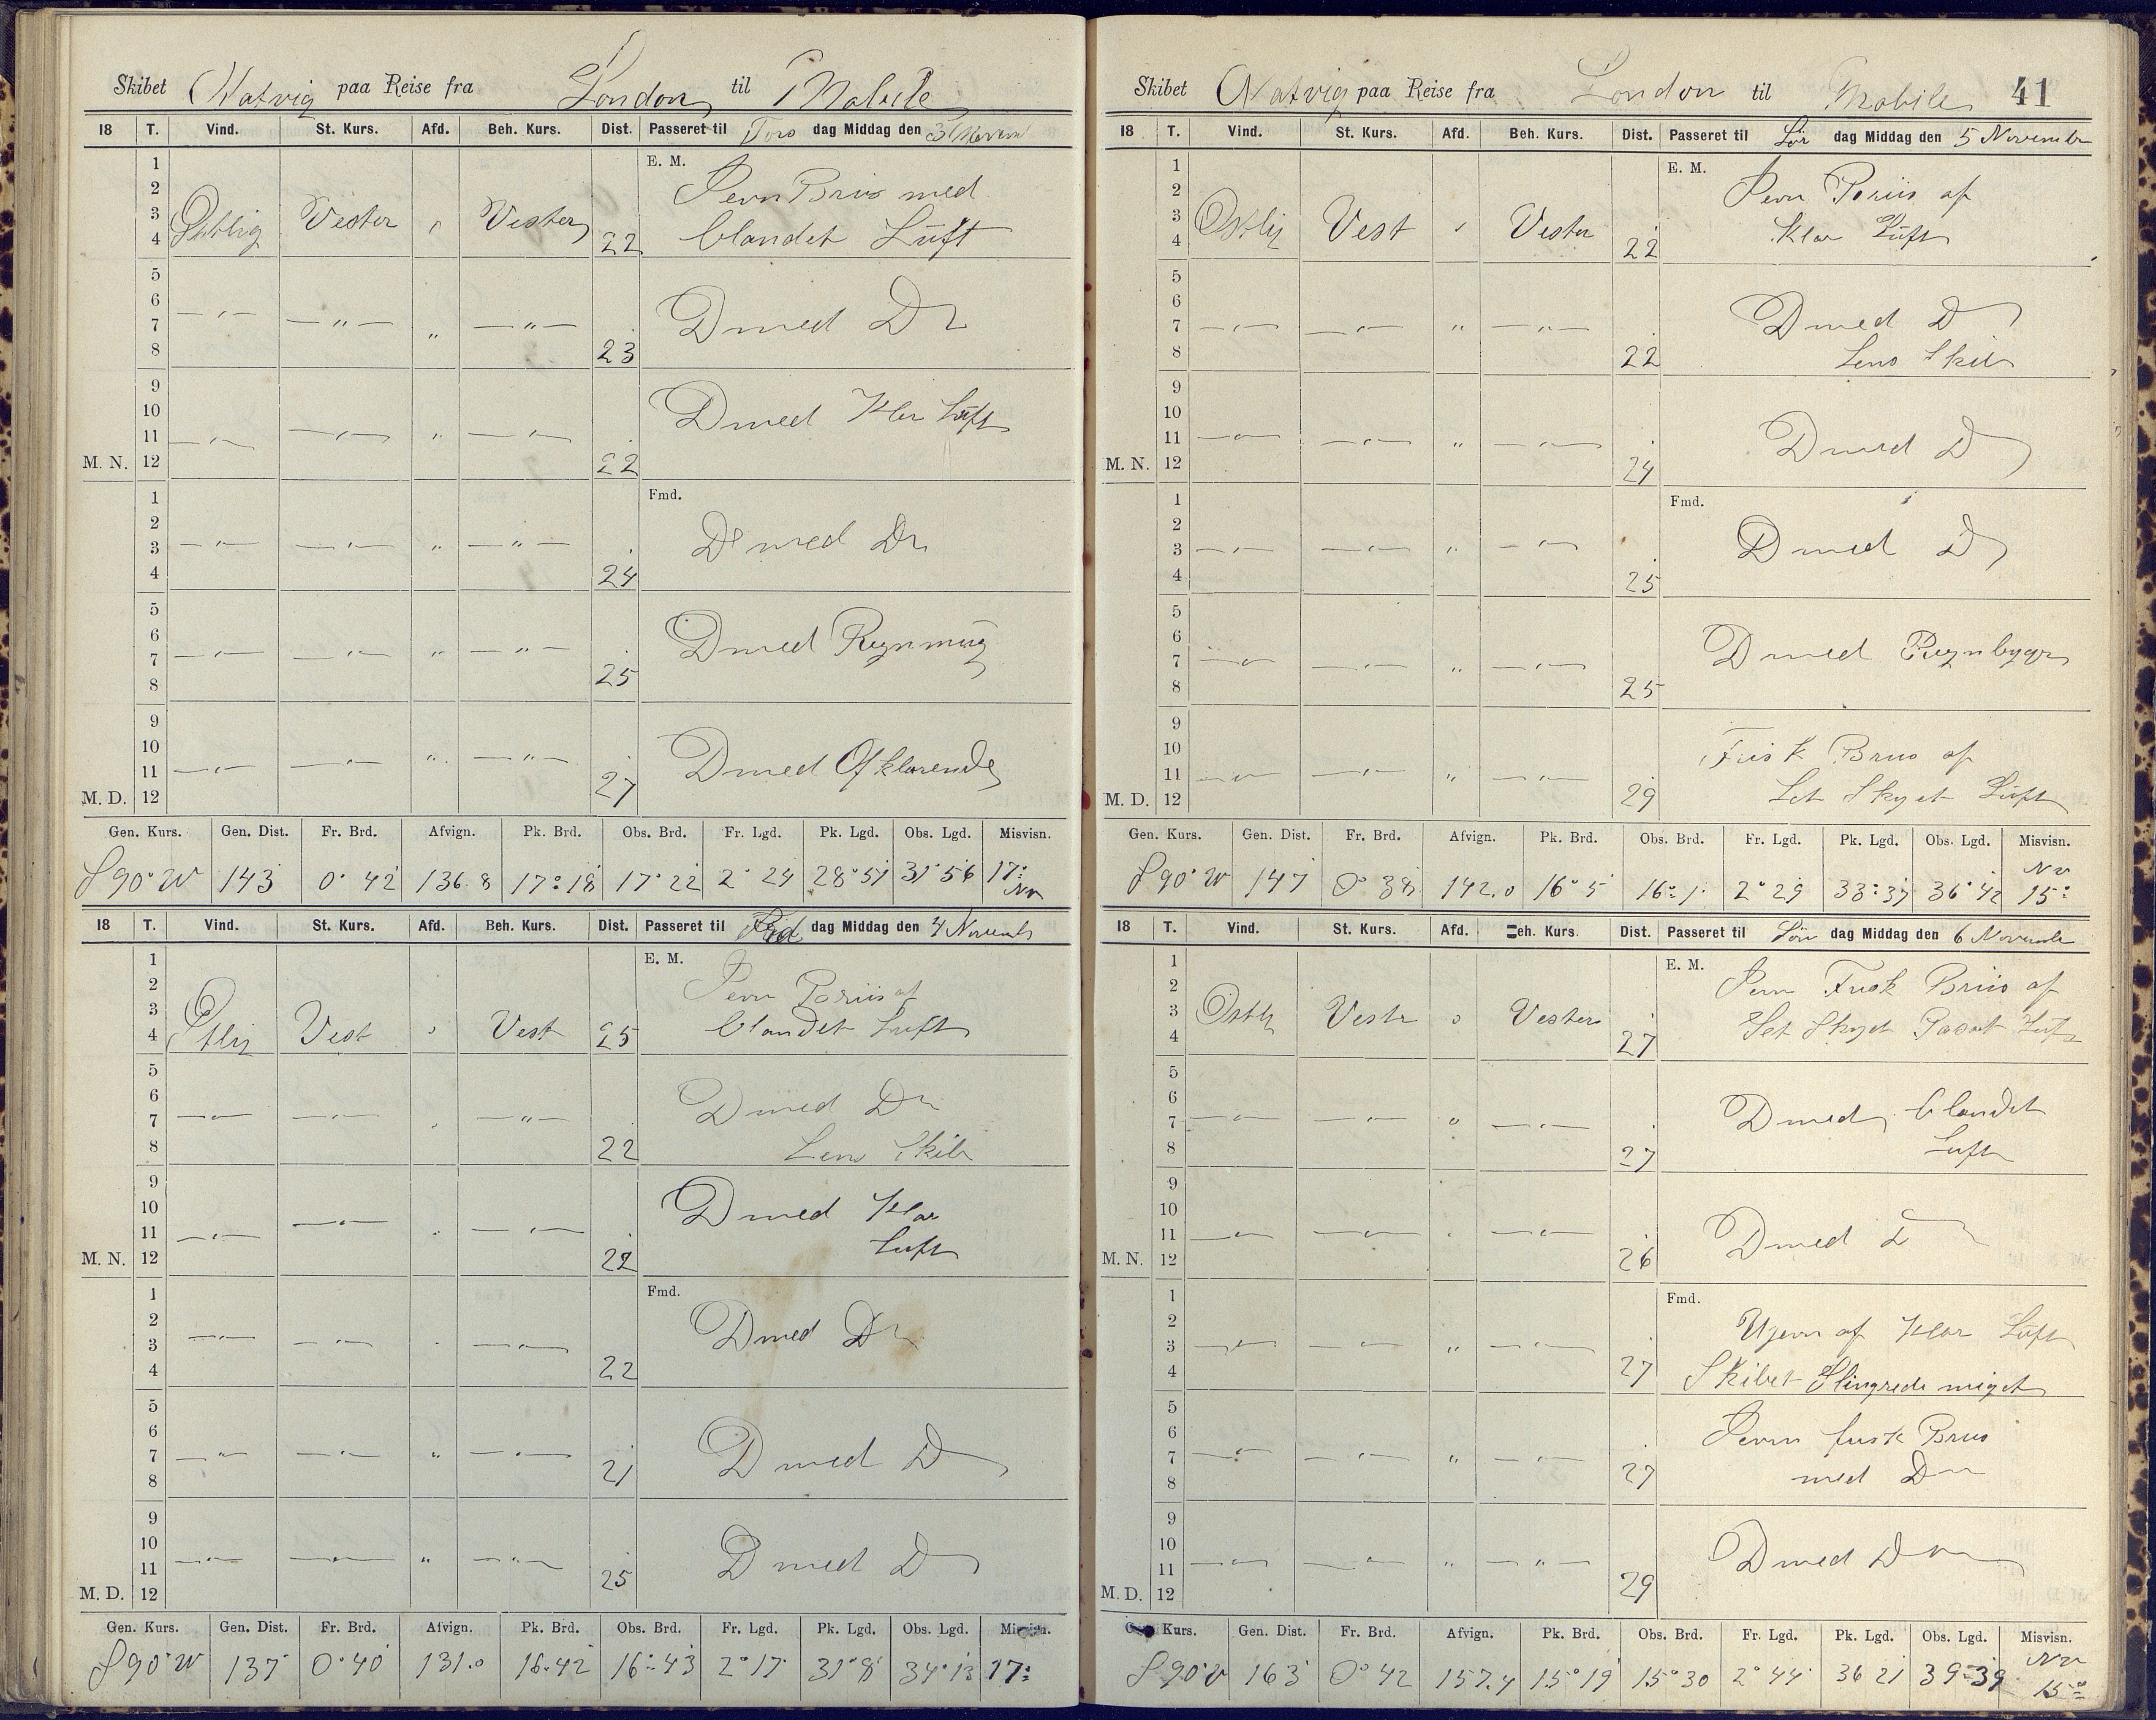 Skibet Natvig paa Reise fra London til Mobile
18 T. Vind. St. Kurs. Afd. Beh. Kurs. Dist. Passeret til Tors dag Middag den 3 Novem
E. M.
1
2 Jevn Briis med
3 Ostlig Vester " Vester
4 22 blandet Luft
5
6
7 —"— —"— " —"— D med Do
8 23
9
10 D med Klar Luft
11 —"— —"— " —"—
M. N. 12 22
1 Fmd.
2
3 —"— —"— " —"— Do med Do
4 24
5
6
7 —"— —"— " —"— D med Regn
8 25
9
10
11 —"— —"— " —"— D med Opklarende
M. D. 12 27
Gen. Kurs. Gen. Dist. Fr. Brd. Afvign. Pk. Brd. Obs. Brd. Fr. Lgd. Pk. Lgd. Obs. Lgd. Misvisn.
S 90° W 143 0° 42 136.8 17° 18 17° 22 2° 24 28° 51 31° 56 17° NV
18 T. Vind. St. Kurs. Afd. Beh. Kurs. Dist. Passeret til dag Middag den 4 Novemb
1 E. M.
2 Jevn Briis af
3
4 Ostlig Vest " Vest 25 blandet Luft
5
6
7 —"— —"— —"— D med Do
8 22 Lens Skib
9
10 D med Klar
11 —"— —"— —"— Luft
M. N. 12 22
1 Fmd.
2
3 —"— —"— —"— D med Do
4 22
5
6
7 —"— —"— " —"— D med D
8 21
9
10
11 —"— —"— " —"— D med D
M. D. 12 25
Gen. Kurs. Gen. Dist. Fr. Brd. Afvign. Pk. Brd. Obs. Brd. Fr. Lgd. Pk. Lgd. Obs. Lgd. Misvisn.
S 90° W 137 0° 40 131.0 16° 42 16° 43 2° 17 31° 8 34° 13 17°
Skibet Natvig paa Reise fra London til Mobile 41
18 T. Vind. St. Kurs. Afd. Beh. Kurs. Dist. Passeret til Lør dag Middag den 5 November
1 E. M.
2 Jevn Briis af
3 Ostlig Vest " Vester
4 22 Klar Luft
5
6
7 —"— —"— " —"— D med D
8 22 Lens Skib
9
10
11 —"— —"— " —"— D med D
M. N. 12 24
1 Fmd.
2
3 —"— —"— " —"— D med D
4 25
5
6
7 —"— —"— " —"— D med Regnbyger
8 25
9
10 Frisk Briis af
11 —"— —"— " —"—
M. D. 12 29 Let Skyet Luft
Gen. Kurs. Gen. Dist. Fr. Brd. Afvign. Pk. Brd. Obs. Brd. Fr. Lgd. Pk. Lgd. Obs. Lgd. Misvisn.
S 90° W 147 0° 38 142.0 16° 5 16° 1 2° 29 33° 37 36° 42 NV 15°
18 T. Vind. St. Kurs. Afd. Beh. Kurs. Dist. Passeret til Søn dag Middag den 6 November
1 E. M.
2 Jevn Frisk Briis af
3 Ostlig Vest " Vester
4 27 Let Skyet Pasat Luft
5
6
7 —"— —"— " —"— D med blandet
8 27 Luft
9
10
11 —"— —"— " —"— D med D
M. N. 12 26
1 Fmd.
2 Ujevn af Klar Luft
3 —"— —"— " —"—
4 27 Skibet Slingrede meget
5
6 Jevn frisk Briis
7 —"— —"— " —"—
8 27 med Do
9
10
11 —"— —"— " —"— D med Do
M. D. 12 29
Kurs. Gen. Dist. Fr. Brd. Afvign. Pk. Brd. Obs. Brd. Fr. Lgd. Pk. Lgd. Obs. Lgd. Misvisn.
S 90° W 163 0° 42 157.4 15° 19 15° 30 2° 44 36 21 39° 39 NV 15°